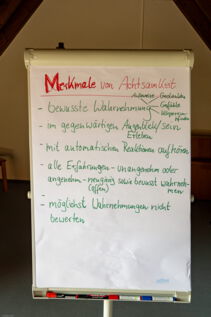 Merkmale von Achtsamkeit
Gedanken
- bewusste Wahrnehmung
Gefühle
- im gegenwärtigen Augenblick/sein
Erleben
- mit automatischen Reaktionen aufhören
- alle Erfahrungen - unangenehm oder
angenehm - neugierig sowie bewusst wahrneh-
(offen)
men
-
- möglichst Wahrnehmungen nicht
bewerten